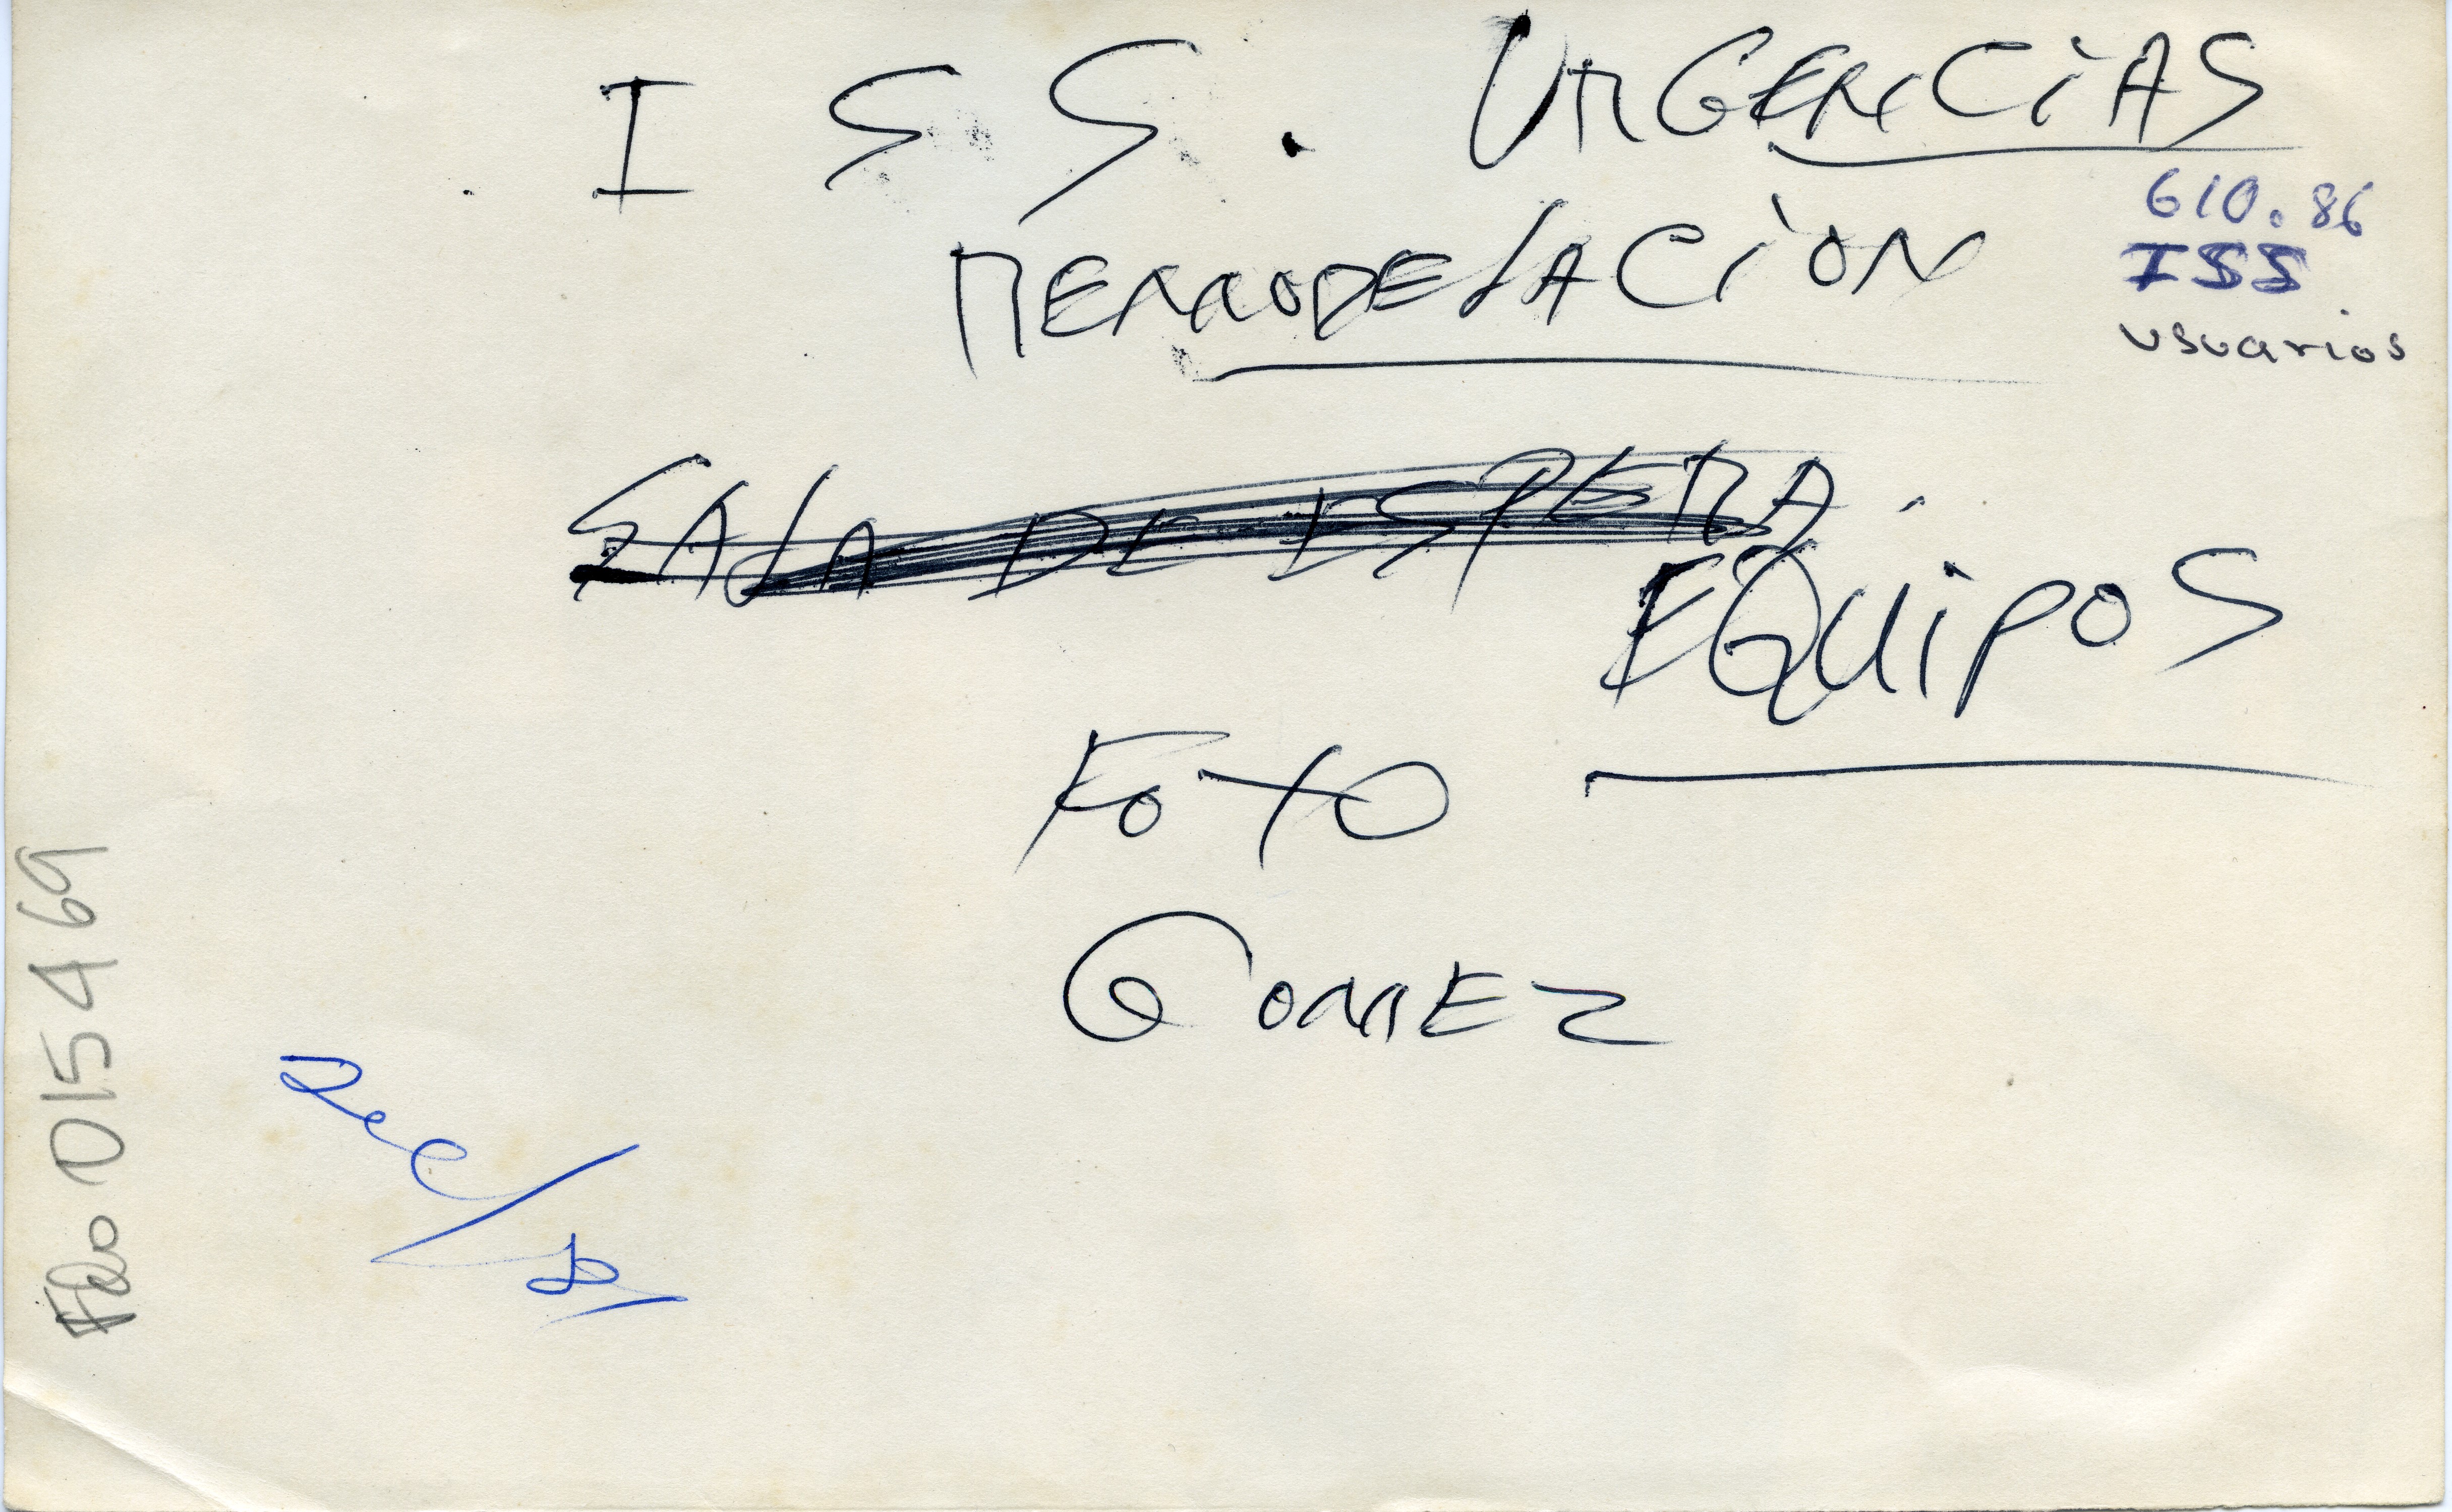 I S S . URGENCIAS
REMODELACION
610.86
ISS
usuarios
SALA DE ESPERA.
EQUIPOS
FOTO
GOMEZ
015469
Dec/